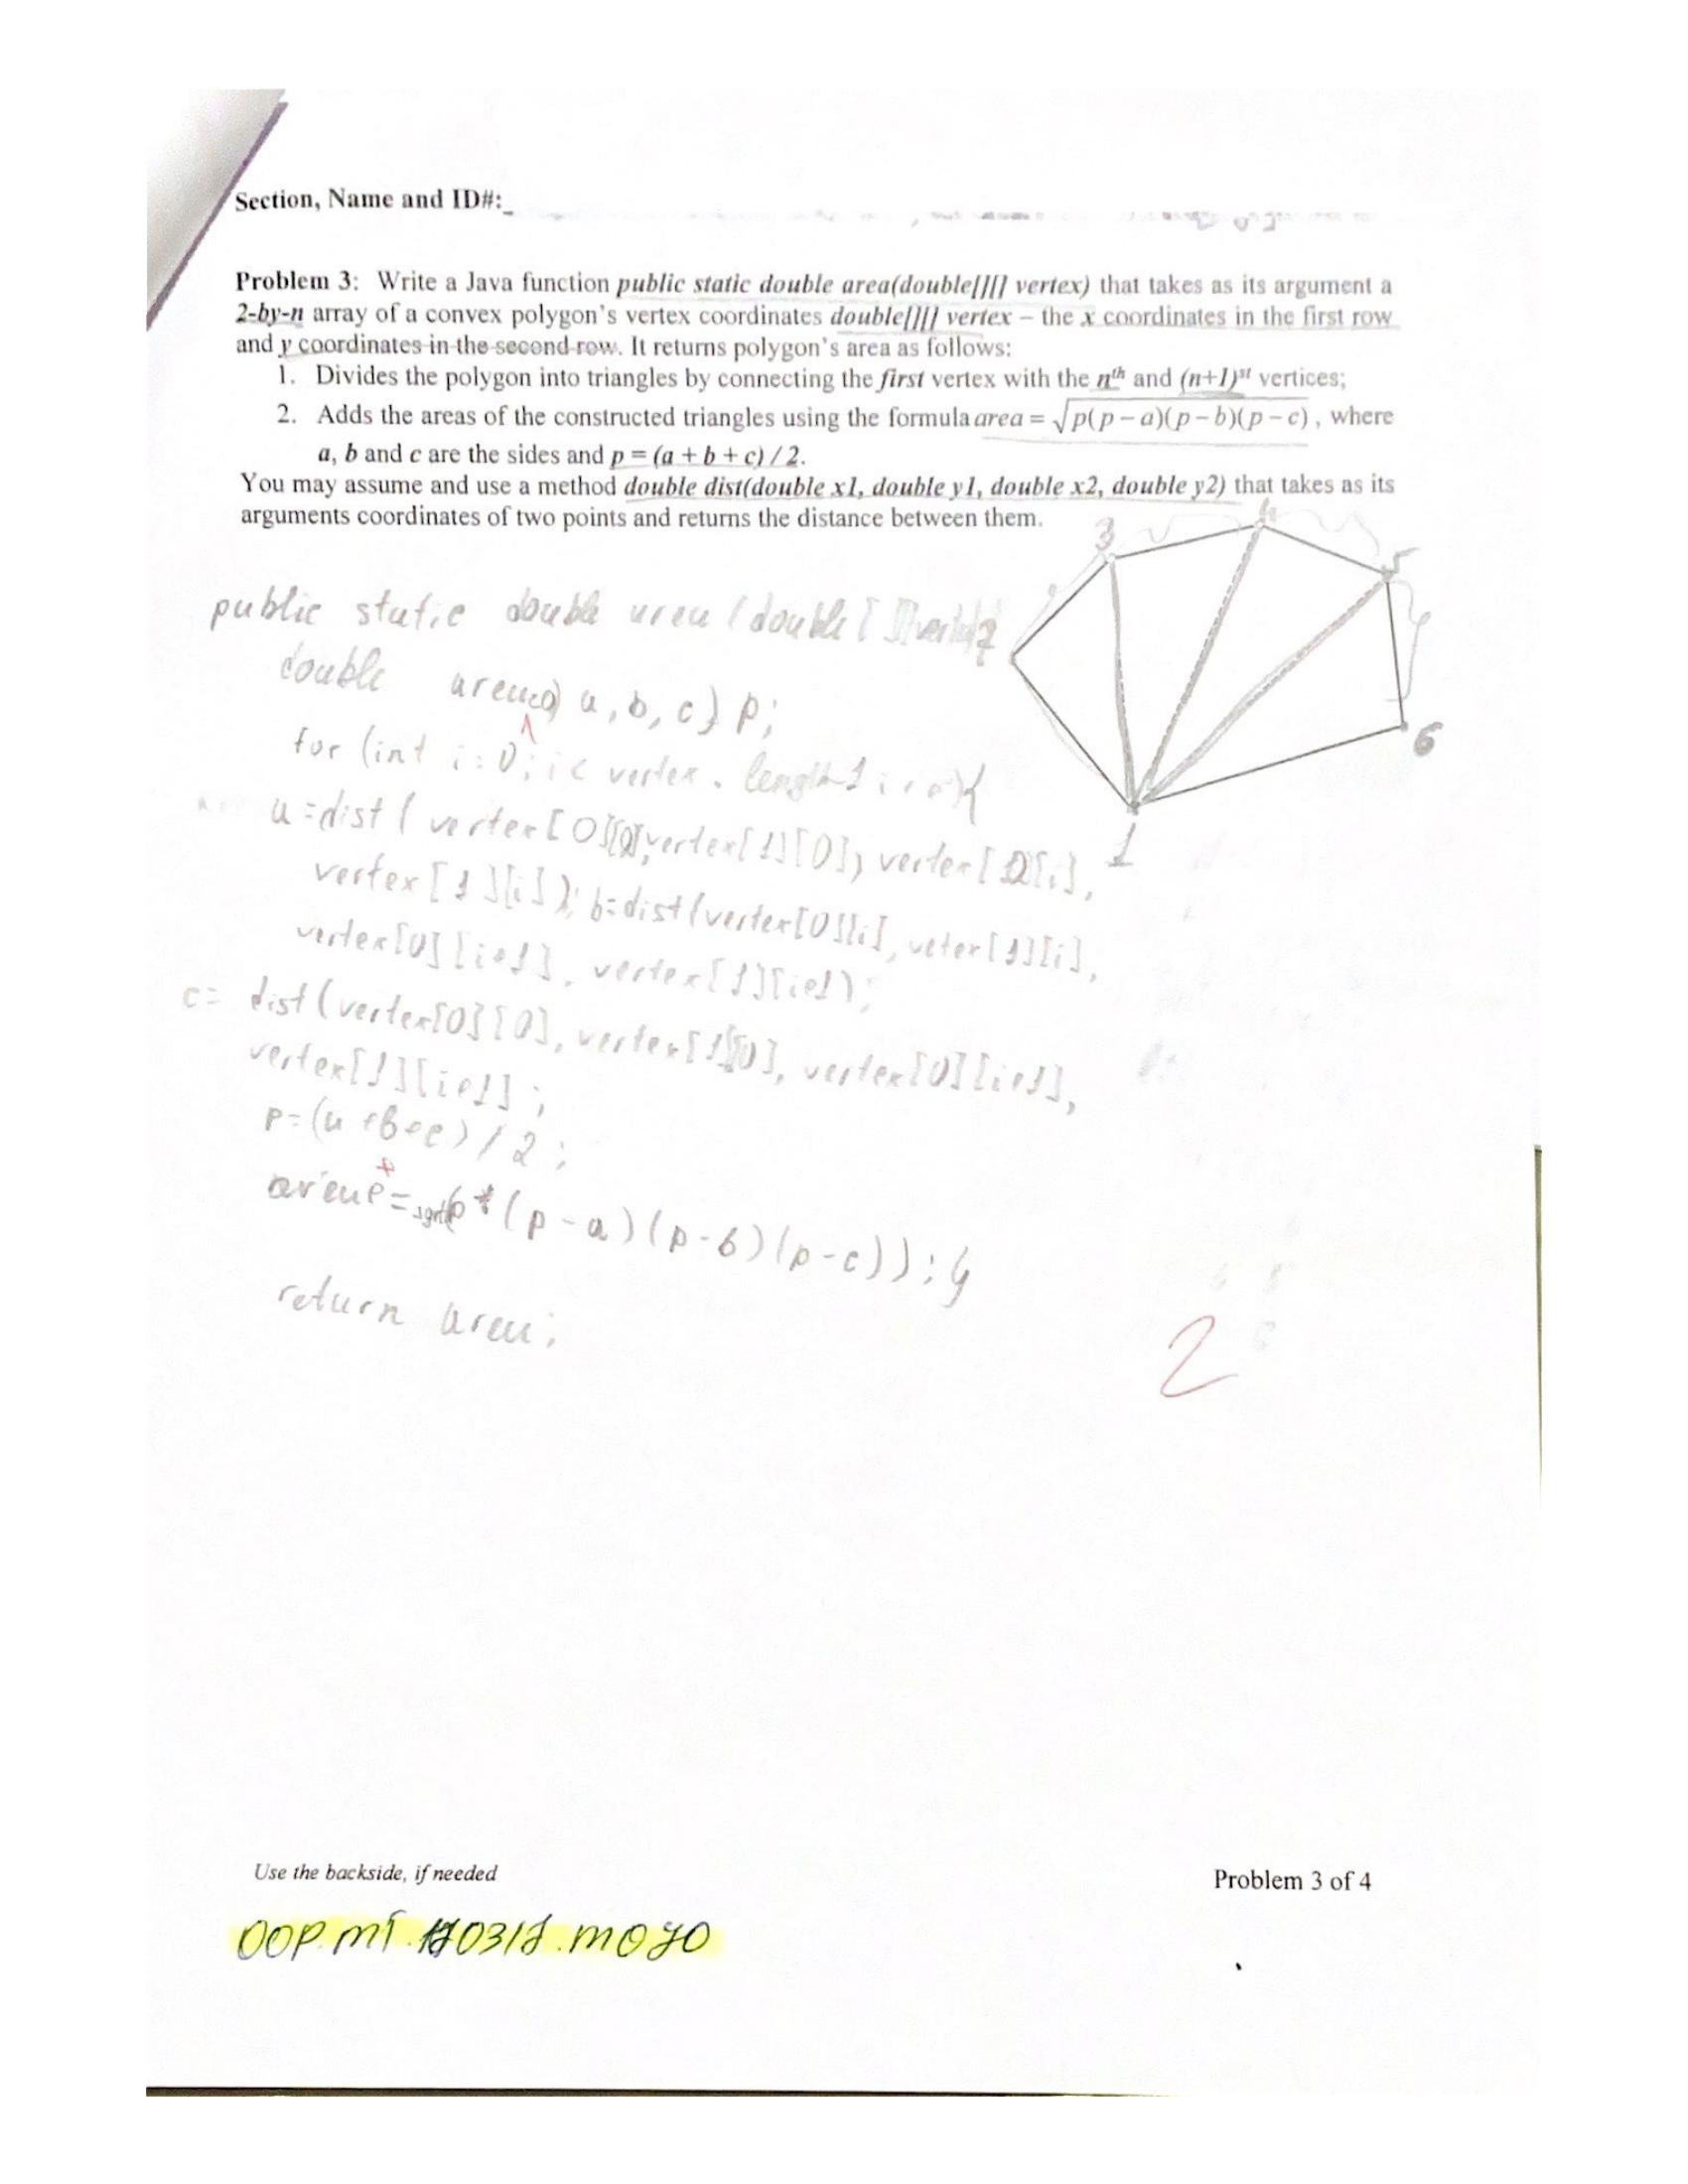 Section, Name and ID#:_
Problem 3: Write a Java function public static double area(double[][] vertex) that takes as its argument a
2-by-n array of a convex polygon's vertex coordinates double[][] vertex – the x coordinates in the first row
and y coordinates in the second row. It returns polygon's area as follows:
1. Divides the polygon into triangles by connecting the first vertex with the nth and (n+1)st vertices;
2. Adds the areas of the constructed triangles using the formula area = √p(p – a)(p – b)(p – c) , where
a, b and c are the sides and p = (a + b + c) / 2.
You may assume and use a method double dist(double x1, double y1, double x2, double y2) that takes as its
arguments coordinates of two points and returns the distance between them.
3 4 5 6 1
public static double area (double [ ][] vertex){
double area=0, a, b, c, p;
for (int i=0; i< vertex . length-1 i++){
a=dist ( vertex[0][0], vertex[1][0], vertex[0][i],
vertex[1][i]); b=dist(vertex[0][i], veter[1][i],
vertex[0][i+1], vertex[1][i+1);
c= dist (vertex[0][0], vertex[1][0], vertex[0][i+1],
vertex[1][i+1] ;
p=(a+b+c) / 2 ;
area+=sqrt(p*(p-a)(p-b)(p-c)); }
return area;
2
Use the backside, if needed
Problem 3 of 4